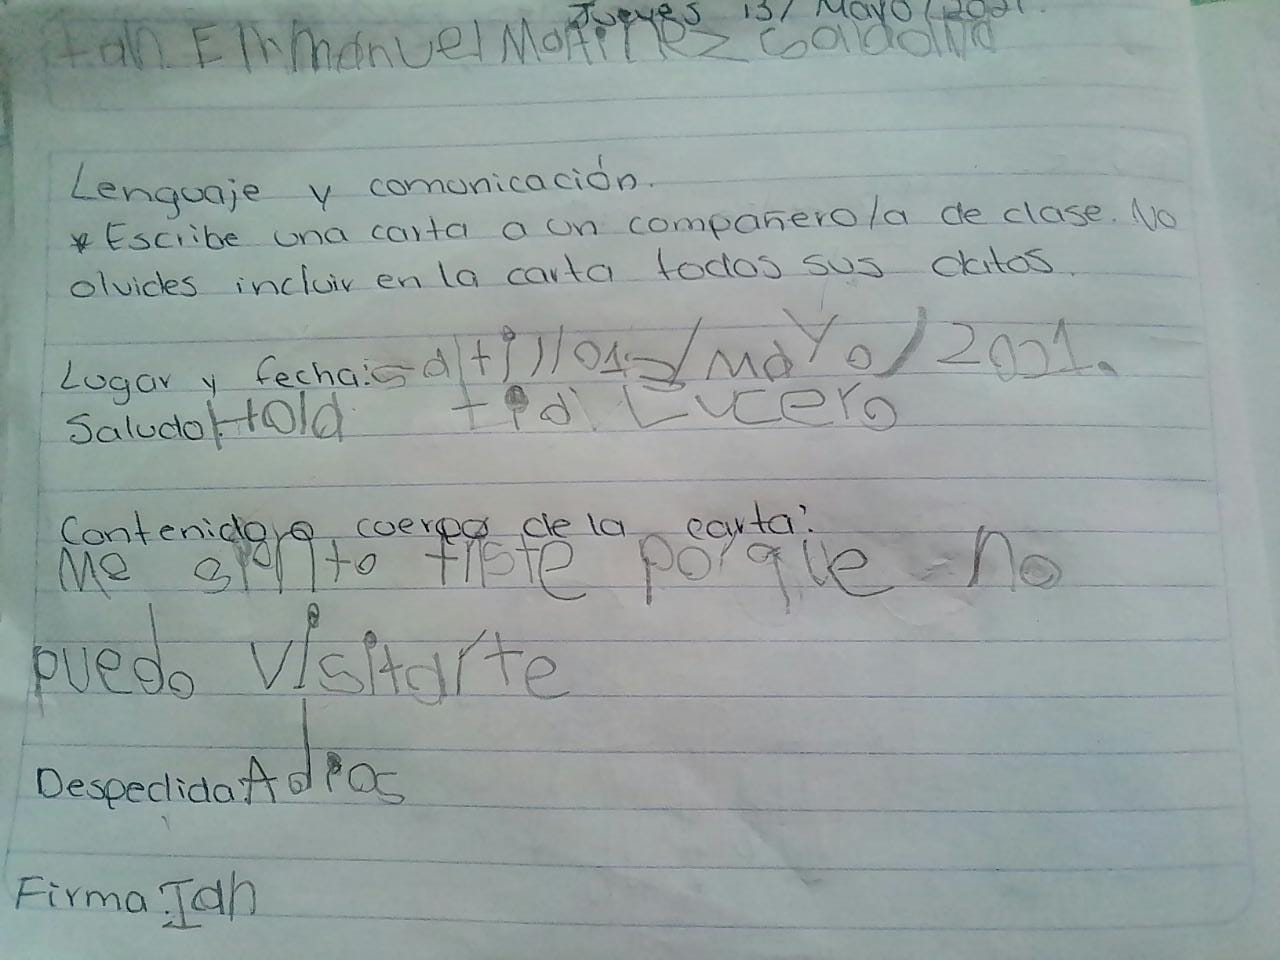 Jueves 13/ Mayo/2021.
Ian Emmanuel Martinez Saldaña
Lenguaje y comunicación.
* Escribe una carta a un compañero/a de clase. No
olvides incluir en la carta todos sus datos.
Lugar y fecha:
/Mayo/2021.
Saludo Hola tia Lucero
Contenido o cuerpo de la carta:
Me siento triste porque no
puedo visitarte
Despedida: Adios
Firma: Ian